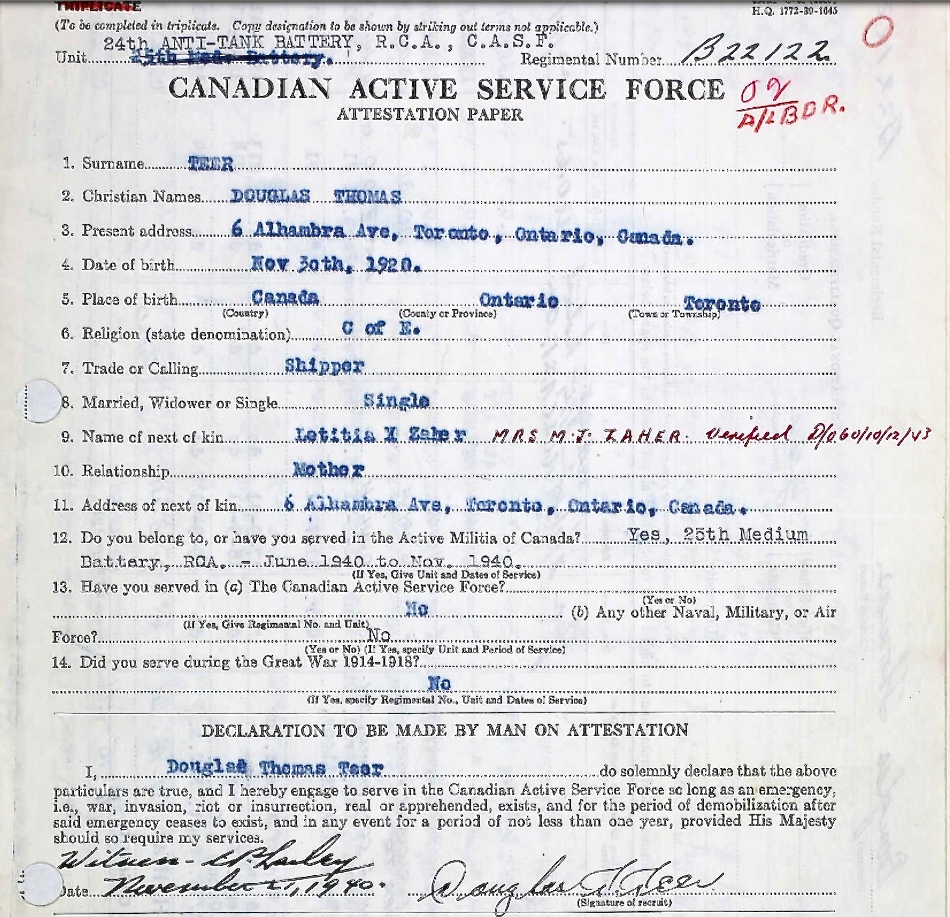 TRIPLICATE
H.Q. 1772-39-1645
(To be completed in triplicate. Copy designation to be shown by striking out terms not applicable.)
24th ANTI-TANK BATTERY, R.C.A., C.A.S.F.
Unit 25th Battery. Regimental Number B22122
O
CANADIAN ACTIVE SERVICE FORCE
ATTESTATION PAPER
A/L BDR.
1. Surname TEER
2. Christian Names DOUGLAS THOMAS
3. Present address 6 Alhambra Ave, Toronto, Ontario, Canada.
4. Date of birth Nov 30th, 1920.
5. Place of birth Canada Ontario Toronto
(Country) (County or Province) (Town or Township)
6. Religion (state denomination) C of E.
7. Trade or Calling Shipper
8. Married, Widower or Single Single
9. Name of next of kin Letitia Zaher MRS M.J. ZAHER. Verified
10. Relationship Mother
11. Address of next of kin 6 Alhambra Ave, Toronto, Ontario, Canada.
12. Do you belong to, or have you served in the Active Militia of Canada? Yes, 25th Medium
Battery, RCA. - June 1940 to Nov. 1940.
(If Yes, Give Unit and Dates of Service)
13. Have you served in (a) The Canadian Active Service Force?
(Yes or No)
No (b) Any other Naval, Military, or Air
(If Yes, Give Regimental No. and Unit)
Force? No
(Yes or No) (If Yes, specify Unit and Period of Service)
14. Did you serve during the Great War 1914-1918?
No
(If Yes, specify Regimental No., Unit and Dates of Service)
DECLARATION TO BE MADE BY MAN ON ATTESTATION
I, Douglas Thomas Teer do solemnly declare that the above
particulars are true, and I hereby engage to serve in the Canadian Active Service Force so long as an emergency,
i.e., war, invasion, riot or insurrection, real or apprehended, exists, and for the period of demobilization after
said emergency ceases to exist, and in any event for a period of not less than one year, provided His Majesty
should so require my services.
Witness -
Date November 21, 1940. Douglas T. Teer
(Signature of recruit)